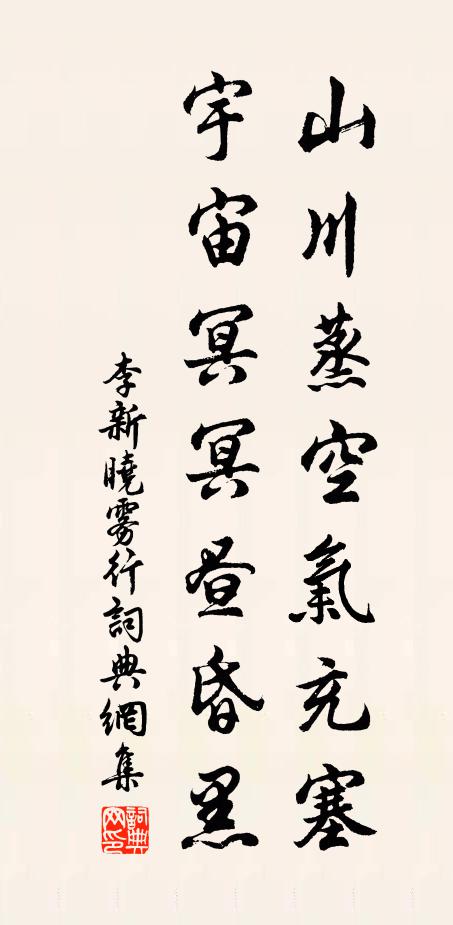 山川蒸空氣充塞
宇宙冥冥昼昏黑
李新曉雾行詞典網集
詞典网印